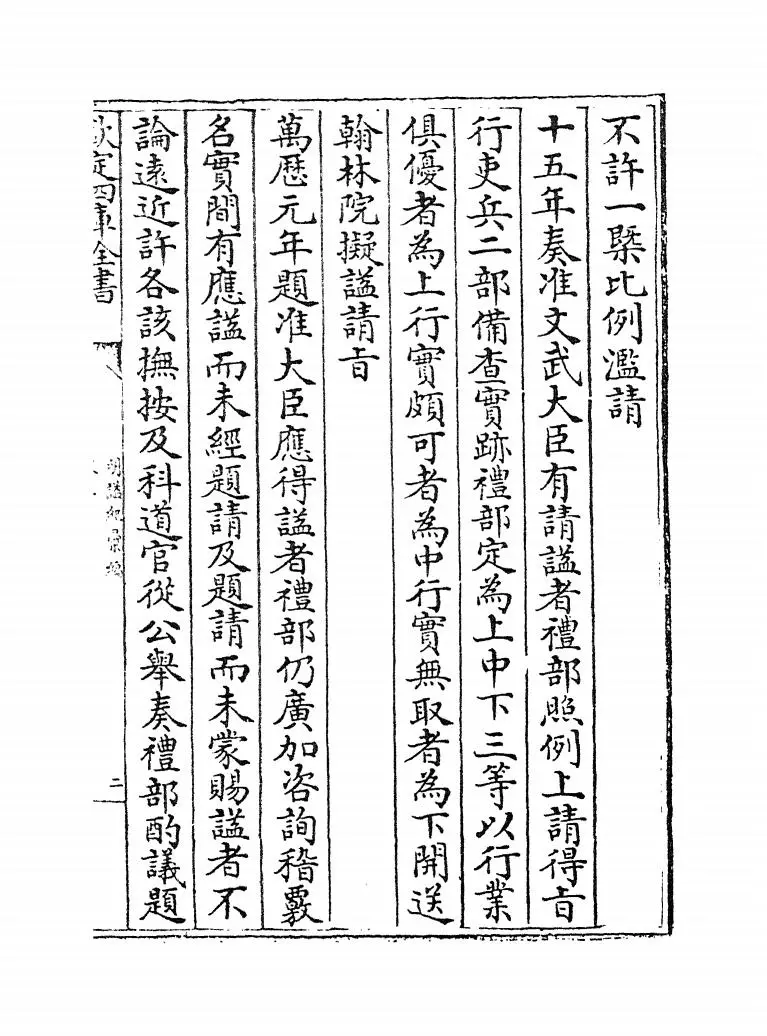 不許一槩比例濫請
十五年奏准文武大臣有請諡者禮部照例上請得㫖
行吏兵二部備查實跡禮部定為上中下三等以行業
俱優者為上行實頗可者為中行實無取者為下開送
翰林院擬諡請㫖
萬歴元年題准大臣應得諡者禮部仍廣加咨詢稽覈
名實間有應諡而未經題請及題請而未蒙賜諡者不
論逺近許各該撫按及科道官從公舉奏禮部酌議題
欽定四庫全書
二